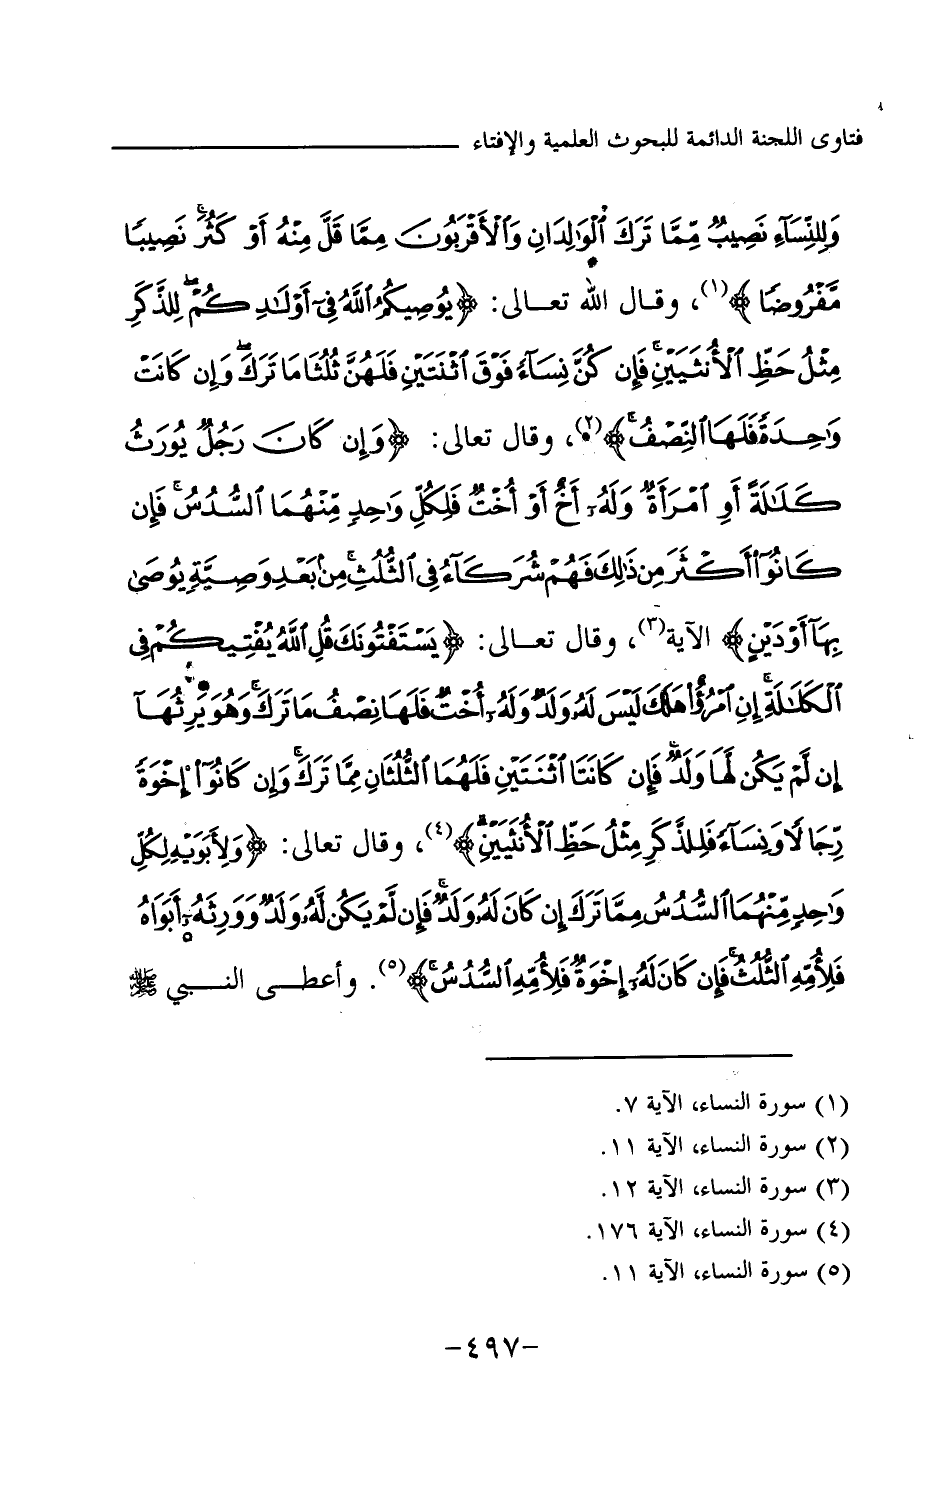 فتاوى اللجنة الدائمة للبحوث العلمية والإفتاء
وَلِلنِّسَآءِ نَصِيبٌ مِّمَّا تَرَكَ ٱلْوَٰلِدَانِ وَٱلْأَقْرَبُونَ مِمَّا قَلَّ مِنْهُ أَوْ كَثُرَ ۚ نَصِيبًا
مَّفْرُوضًا ﴾(١)، وقال الله تعالى: ﴿ يُوصِيكُمُ ٱللَّهُ فِىٓ أَوْلَٰدِكُمْ ۖ لِلذَّكَرِ
مِثْلُ حَظِّ ٱلْأُنثَيَيْنِ ۚ فَإِن كُنَّ نِسَآءً فَوْقَ ٱثْنَتَيْنِ فَلَهُنَّ ثُلُثَا مَا تَرَكَ ۖ وَإِن كَانَتْ
وَٰحِدَةً فَلَهَا ٱلنِّصْفُ ۚ ﴾(٢)، وقال تعالى: ﴿ وَإِن كَانَ رَجُلٌ يُورَثُ
كَلَٰلَةً أَوِ ٱمْرَأَةٌ وَلَهُۥٓ أَخٌ أَوْ أُخْتٌ فَلِكُلِّ وَٰحِدٍ مِّنْهُمَا ٱلسُّدُسُ ۚ فَإِن
كَانُوٓا۟ أَكْثَرَ مِن ذَٰلِكَ فَهُمْ شُرَكَآءُ فِى ٱلثُّلُثِ ۚ مِنۢ بَعْدِ وَصِيَّةٍ يُوصَىٰ
بِهَآ أَوْ دَيْنٍ ﴾ الآية(٣)، وقال تعالى: ﴿ يَسْتَفْتُونَكَ قُلِ ٱللَّهُ يُفْتِيكُمْ فِى
ٱلْكَلَٰلَةِ ۚ إِنِ ٱمْرُؤٌا۟ هَلَكَ لَيْسَ لَهُۥ وَلَدٌ وَلَهُۥٓ أُخْتٌ فَلَهَا نِصْفُ مَا تَرَكَ ۚ وَهُوَ يَرِثُهَآ
إِن لَّمْ يَكُن لَّهَا وَلَدٌ ۚ فَإِن كَانَتَا ٱثْنَتَيْنِ فَلَهُمَا ٱلثُّلُثَانِ مِمَّا تَرَكَ ۚ وَإِن كَانُوٓا۟ إِخْوَةً
رِّجَالًا وَنِسَآءً فَلِلذَّكَرِ مِثْلُ حَظِّ ٱلْأُنثَيَيْنِ ۗ ﴾(٤)، وقال تعالى: ﴿ وَلِأَبَوَيْهِ لِكُلِّ
وَٰحِدٍ مِّنْهُمَا ٱلسُّدُسُ مِمَّا تَرَكَ إِن كَانَ لَهُۥ وَلَدٌ ۚ فَإِن لَّمْ يَكُن لَّهُۥ وَلَدٌ وَوَرِثَهُۥٓ أَبَوَاهُ
فَلِأُمِّهِ ٱلثُّلُثُ ۚ فَإِن كَانَ لَهُۥٓ إِخْوَةٌ فَلِأُمِّهِ ٱلسُّدُسُ ۚ ﴾(٥). وأعطى النبي ﷺ
(١) سورة النساء، الآية ٧.
(٢) سورة النساء، الآية ١١.
(٣) سورة النساء، الآية ١٢.
(٤) سورة النساء، الآية ١٧٦.
(٥) سورة النساء، الآية ١١.
-٤٩٧-